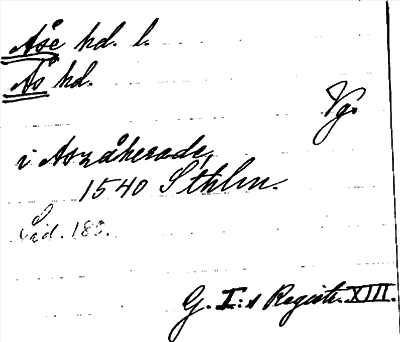 Åse hd. l.
Ås hd.
Vg.
i Aszåherade,
1540 Sthlm.
Sid. 183.
G. I:s Registr. XIII.